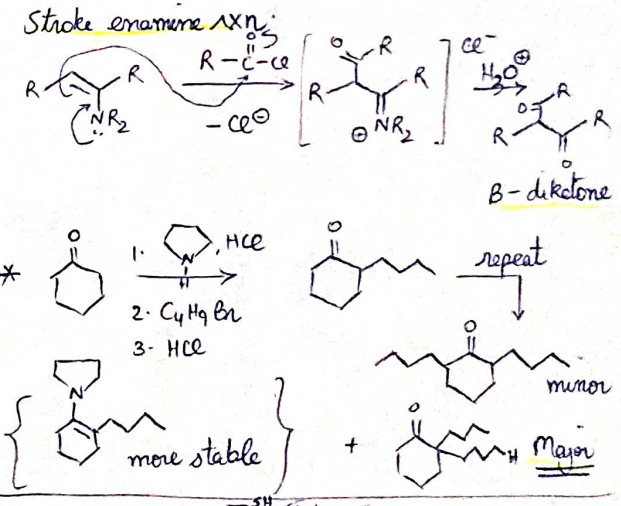 Stroke enamine rxn:
R-C-Cl
O
R R
NR2
- Cl⊖
O R
R R
⊕ NR2
Cl⁻
H3O⊕
O R
R R
O
B-diketone
* O
1. N H , HCl
2. C4H9Br
3- HCl
O
repeat
O
minor
N
more stable
+
O
H
Major
SH